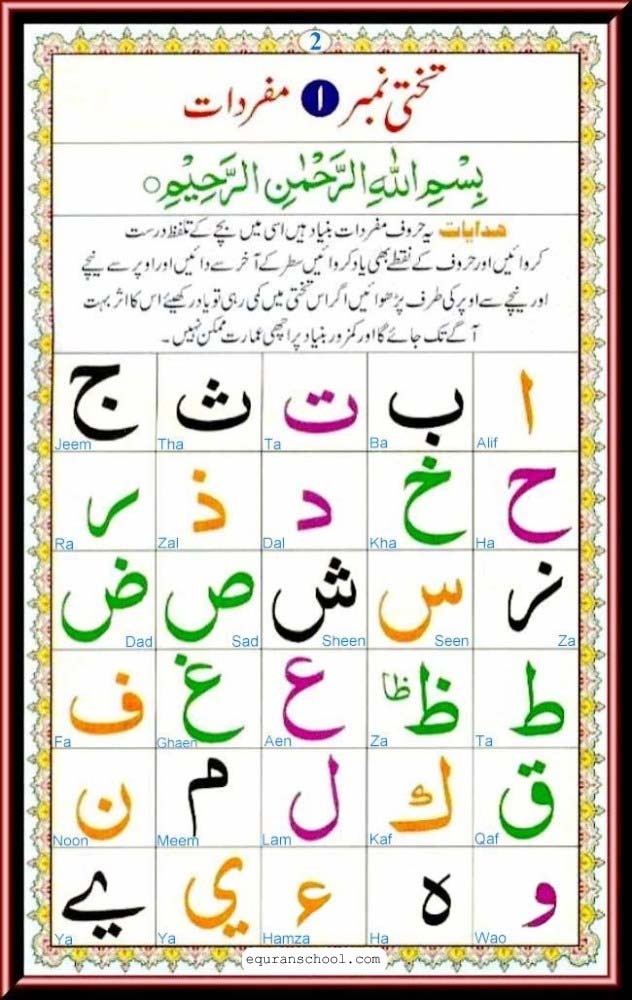 2
تختی نمبر ۱ مفردات
بِسْمِ اللهِ الرَّحْمٰنِ الرَّحِيْمِ
ھدایات یہ حروف مفردات بنیاد ہیں اسی میں بچے کے تلفظ درست
کروائیں اور حروف کے نقطے بھی یاد کروائیں سطر کے آخر سے دائیں اور اوپر سے نیچے
اور نیچے سے اوپر کی طرف پڑھوائیں اگر اس تختی میں کمی رہی تو یاد رکھیئے اس کا اثر بہت
آگے تک جائے گا اور کمزور بنیاد پر اچھی عمارت ممکن نہیں۔
ا ب ت ث ج
Alif Ba Ta Tha Jeem
ح خ د ذ ر
Ha Kha Dal Zal Ra
ز س ش ص ض
Za Seen Sheen Sad Dad
ط ظ ظا ع غ ف
Ta Za Aen Ghaen Fa
ق ك ل م ن
Qaf Kaf Lam Meem Noon
و ه ء ي ے
Wao Ha Hamza Ya Ya
equranschool.com